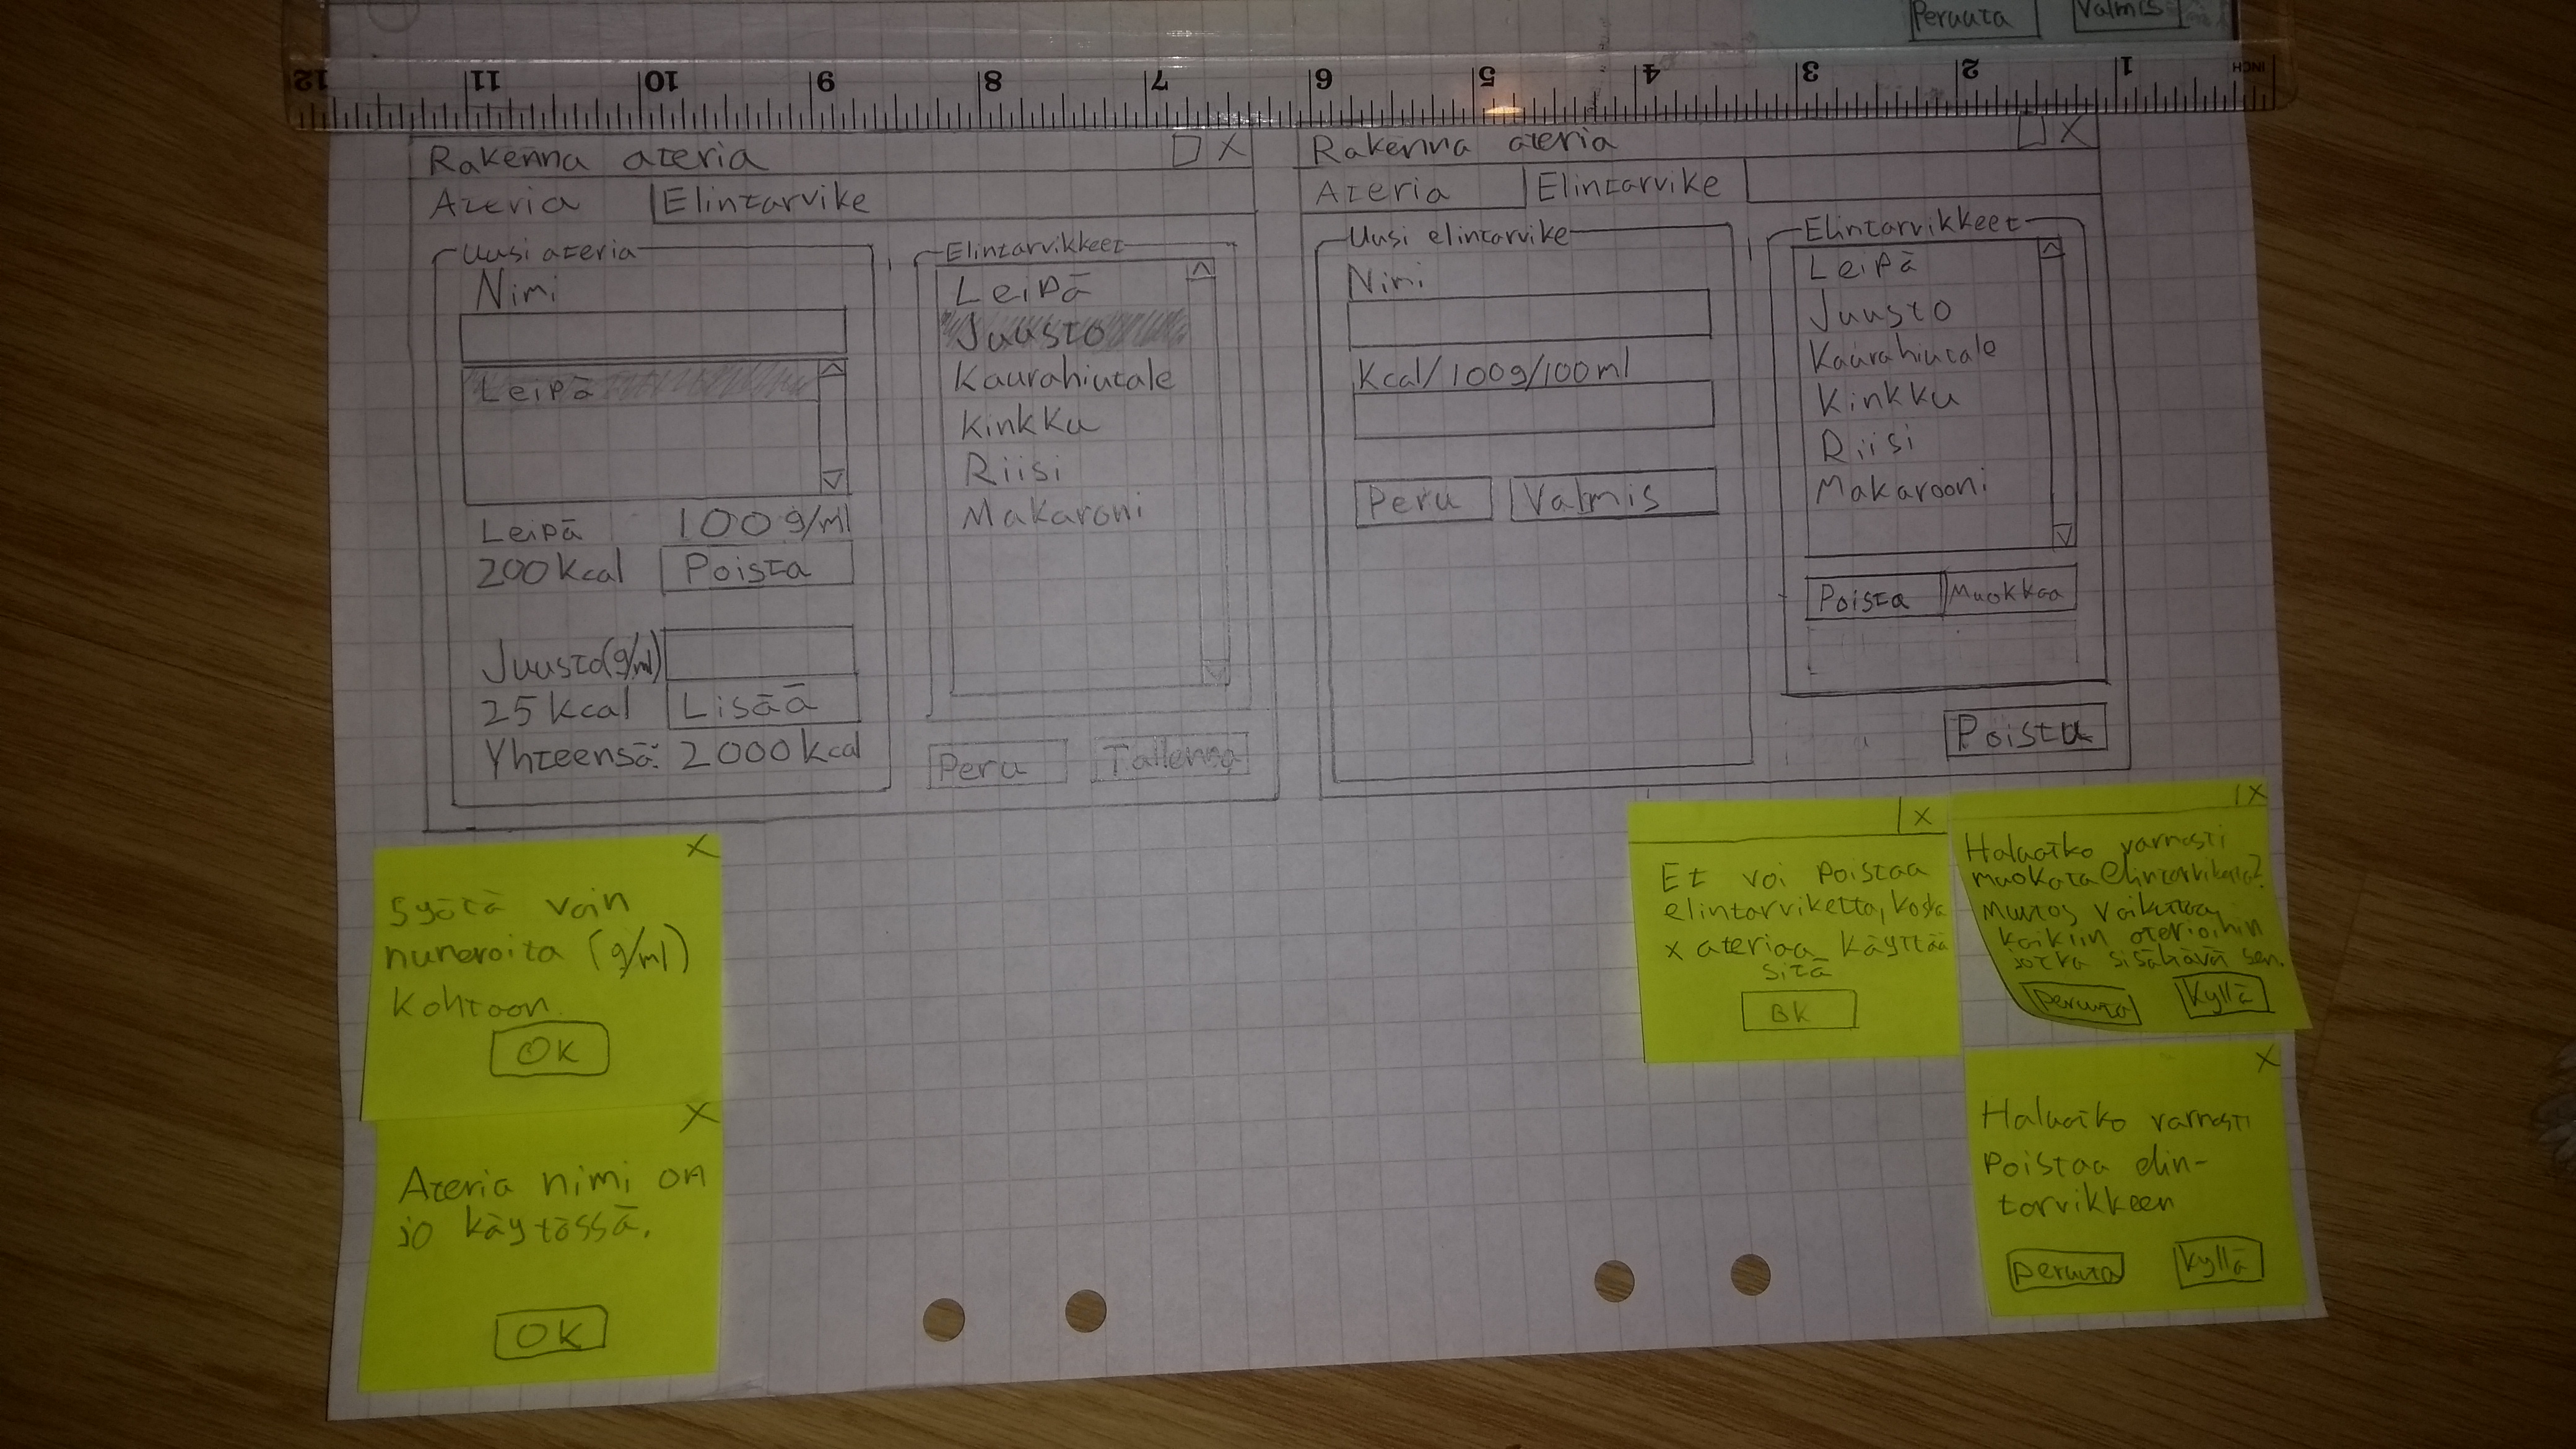 Peruuta Valmis
12 11 10 9 8 7 6 5 4 3 2 1 INCH
Rakenna ateria X
Ateria Elintarvike
Uusi ateria
Nimi
Leipä
Leipä 100 g/ml
200 kcal Poista
Juusto(g/ml)
25 kcal Lisää
Yhteensä: 2000 kcal
Elintarvikkeet
Leipä
Juusto
Kaurahiutale
Kinkku
Riisi
Makaroni
Peru Tallenna
Rakenna ateria X
Ateria Elintarvike
Uusi elintarvike
Nimi
Kcal/100g/100ml
Peru Valmis
Elintarvikkeet
Leipä
Juusto
Kaurahiutale
Kinkku
Riisi
Makarooni
Poista Muokkaa
Poistu
X
Syötä vain
numeroita (g/ml)
kohtaan.
OK
X
Ateria nimi on
jo käytössä.
OK
X
Et voi poistaa
elintarviketta, koska
x ateriaa käyttää
sitä
OK
X
Haluatko varmasti
muokata elintarviketta?
Muutos vaikuttaa
kaikiin aterioihin
jotka sisältävä sen.
peruuta Kyllä
X
Haluatko varmasti
poistaa elin-
tarvikkeen
peruuta Kyllä